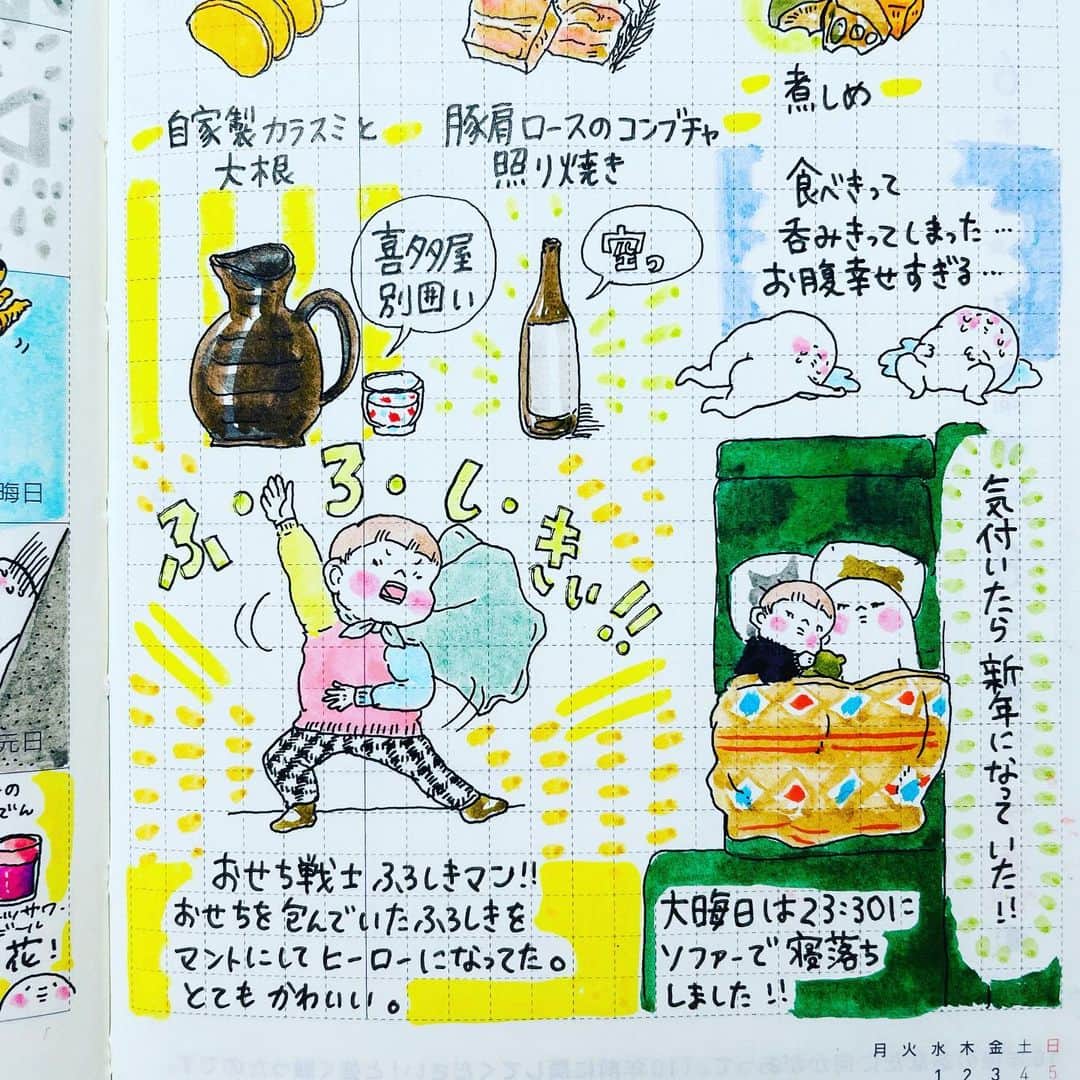 自家製カラスミと
大根
豚肩ロースのコンブチャ
照り焼き
煮しめ
食べきって
呑みきってしまった…
お腹幸せすぎる…
喜多屋
別囲い
ふ・ろ・し・きぃ!!
気付いたら新年になっていた!!
おせち戦士ふろしきマン!!
おせちを包んでいたふろしきを
マントにしてヒーローになってた。
とてもかわいい。
大晦日は23:30に
ソファーで寝落ち
しました!!
晦日
元日
の
でん
花!
月 火 水 木 金 土 日
1 2 3 4 5